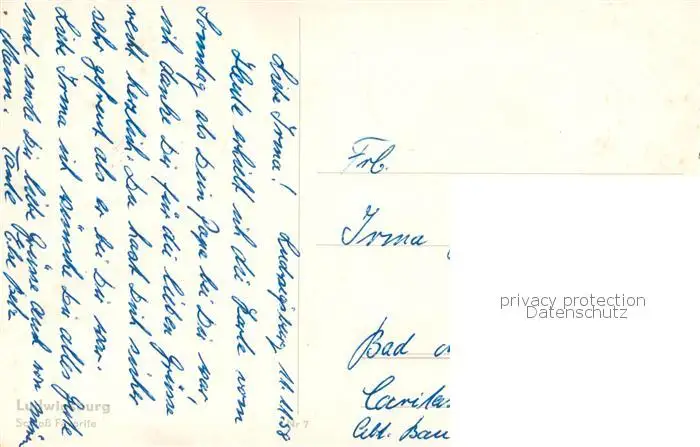 Ludwigsburg, 11.11.58
Liebe Irma!
Heute erhielt ich die Karte vom
Sonntag als Dein Papa bei Dir war
ich danke Dir für die lieben Grüsse
recht herzlich. Du hast Dich sicher
sehr gefreut als er bei Dir war.
Liebe Irma ich wünsche Dir alles Gute
und sende Dir liebe Grüsse auch von
Mann. Tante Else
Frl.
Irma
Bad
Caritas
Abt. Bau
privacy protection
Datenschutz
Ludwigsburg
Schloß Favorite
Nr 7